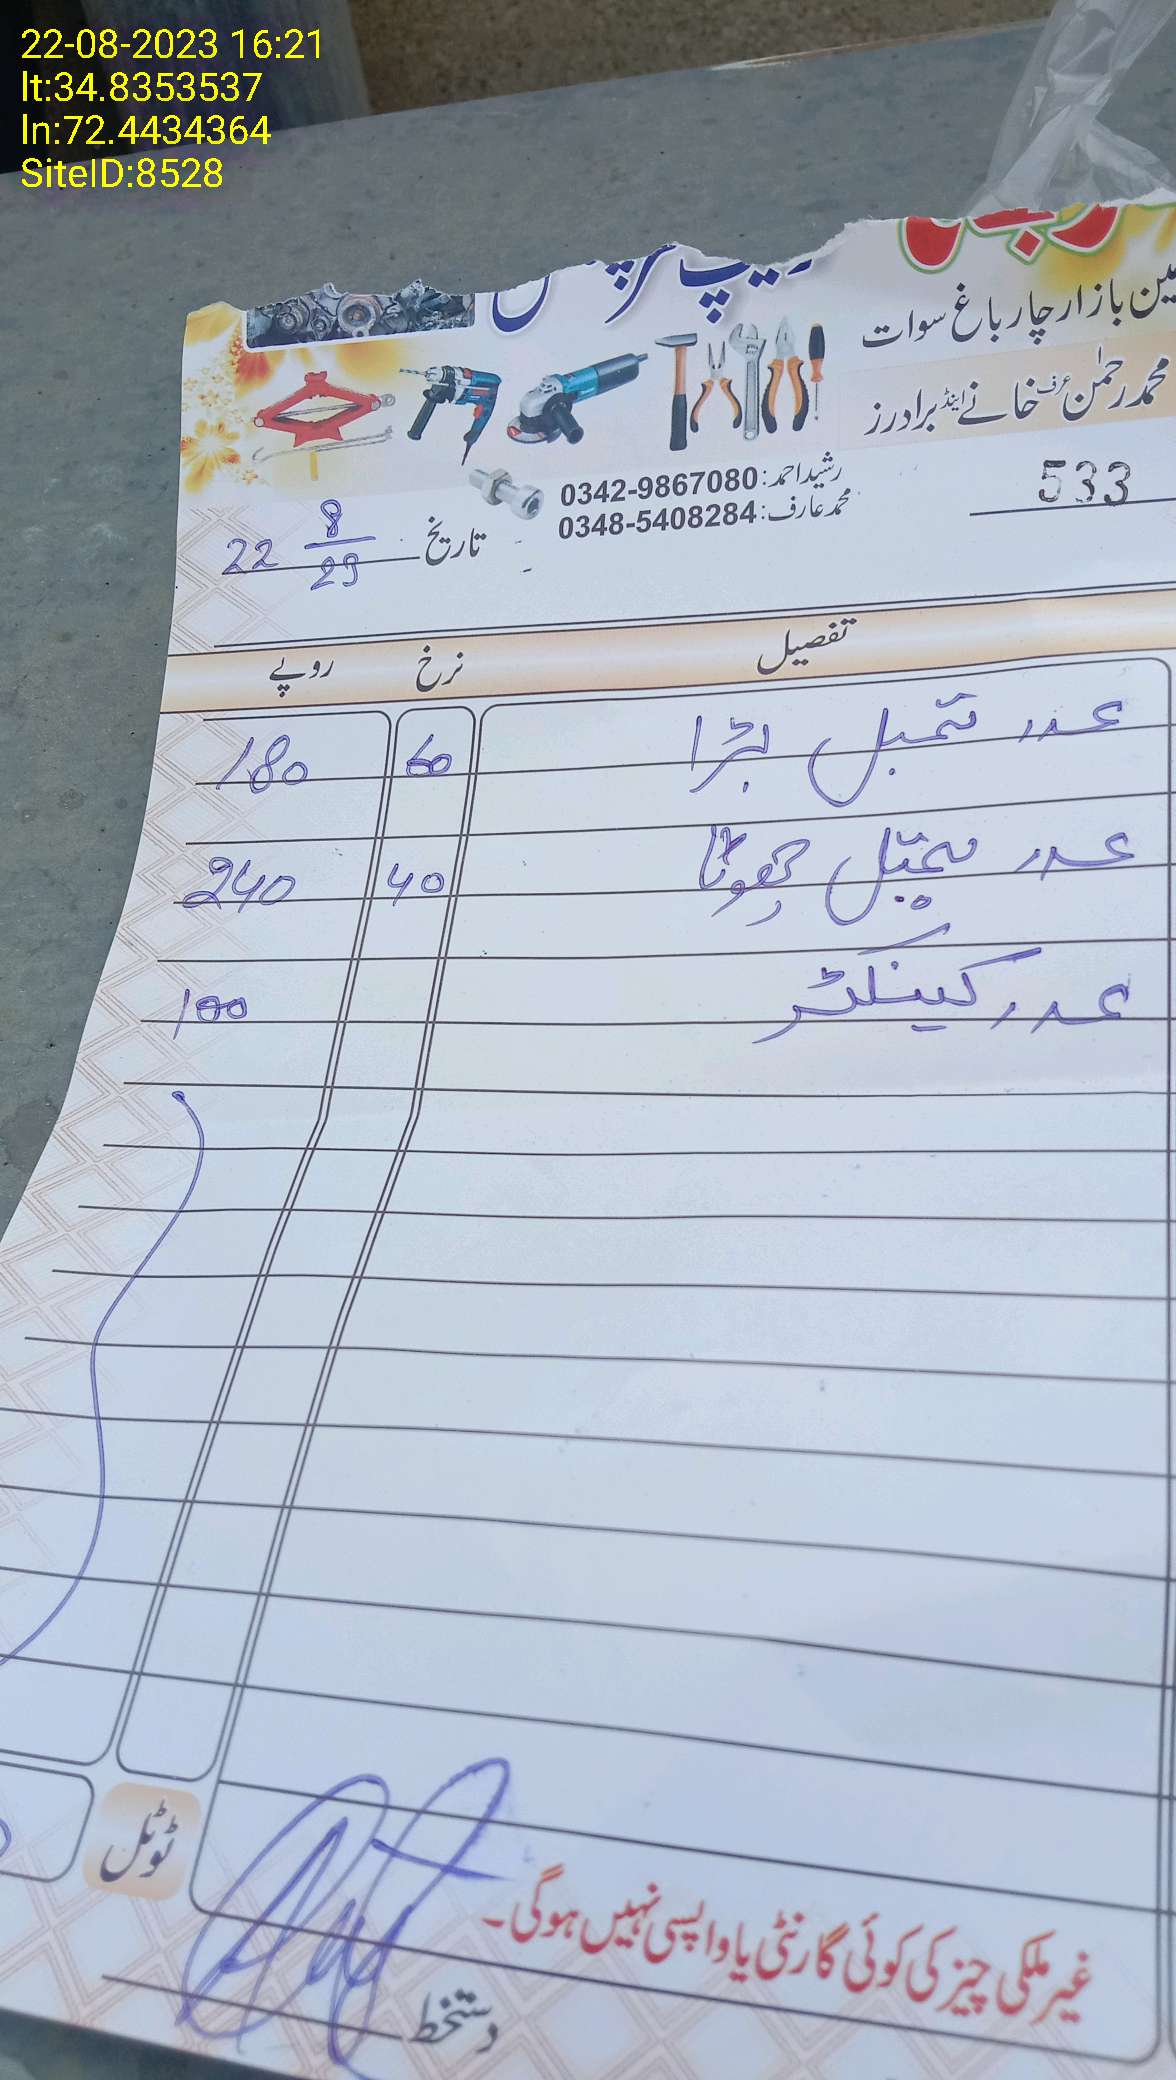 22-08-2023 16:21
lt:34.8353537
ln:72.4434364
SiteID:8528
مین بازار چار باغ سوات
محمد رحمٰن عرف خانے اینڈ برادرز
رشید احمد: 0342-9867080
محمد عارف: 0348-5408284
533
تاریخ 22 8/23
تفصیل نرخ روپے
عدد تھمبل بڑا 60 180
عدد تھمبل چھوٹا 40 240
عدد کینکٹر 100
ٹوٹل
غیر ملکی چیز کی کوئی گارنٹی یا واپسی نہیں ہوگی۔
دستخط